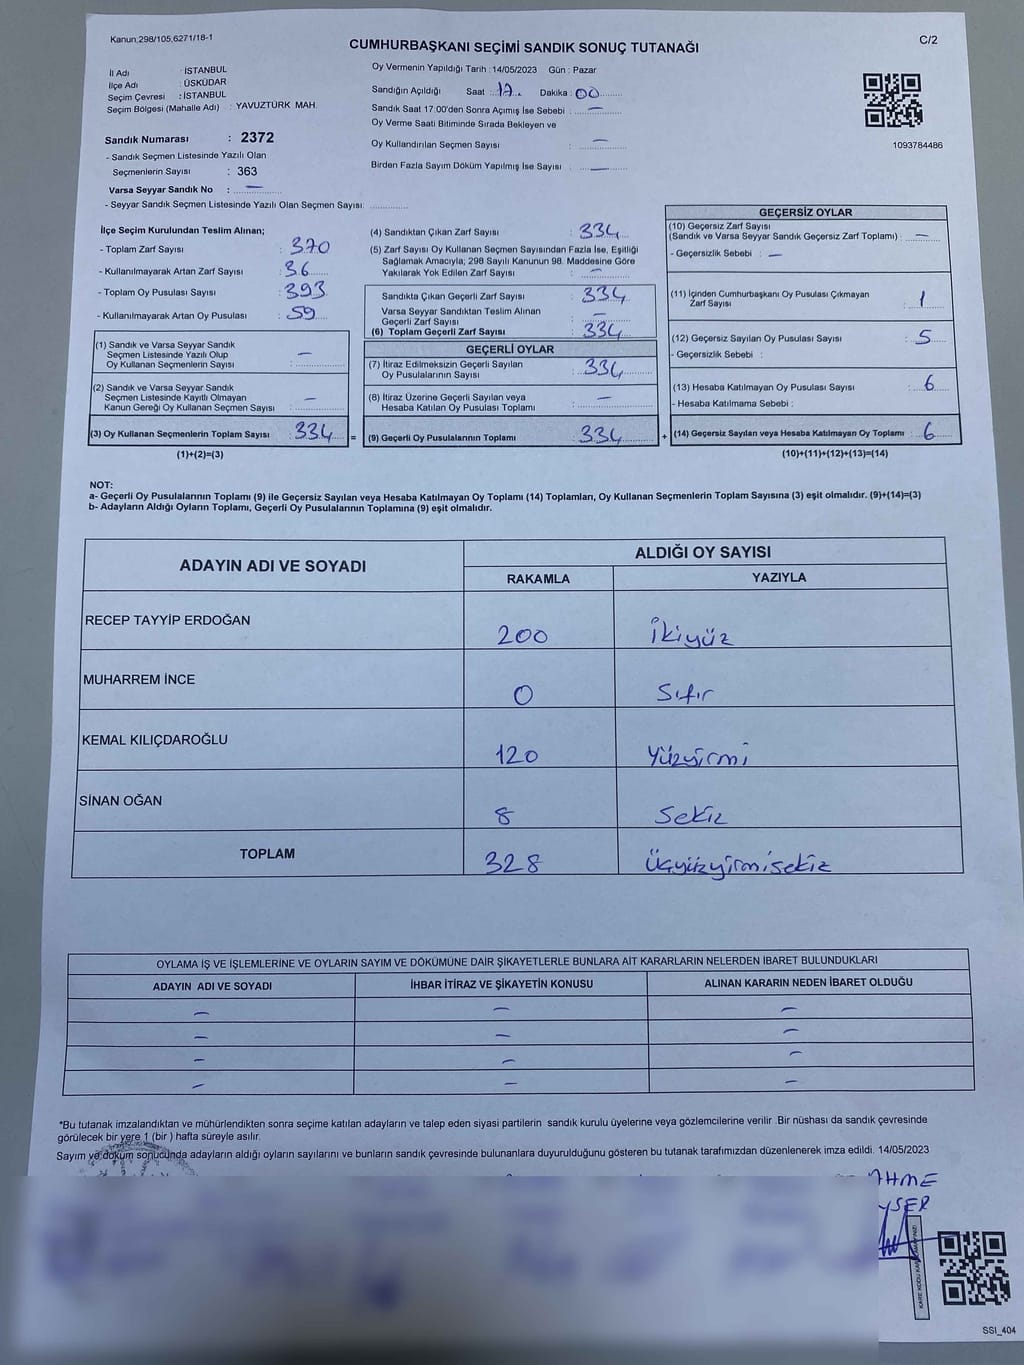 Kanun;298/105,6271/18-1
CUMHURBAŞKANI SEÇİMİ SANDIK SONUÇ TUTANAĞI
C/2
İl Adı : İSTANBUL
İlçe Adı : ÜSKÜDAR
Seçim Çevresi : İSTANBUL
Seçim Bölgesi (Mahalle Adı) : YAVUZTÜRK MAH.
Oy Vermenin Yapıldığı Tarih : 14/05/2023 Gün : Pazar
Sandığın Açıldığı Saat : 17. Dakika : 00
Sandık Saat 17:00'den Sonra Açımış İse Sebebi : —
Oy Verme Saati Bitiminde Sırada Bekleyen ve
Oy Kullandırılan Seçmen Sayısı : —
Birden Fazla Sayım Döküm Yapılmış İse Sayısı : —
1093784486
Sandık Numarası : 2372
- Sandık Seçmen Listesinde Yazılı Olan
Seçmenlerin Sayısı : 363
Varsa Seyyar Sandık No : —
- Seyyar Sandık Seçmen Listesinde Yazılı Olan Seçmen Sayısı:
İlçe Seçim Kurulundan Teslim Alınan;
- Toplam Zarf Sayısı : 370
- Kullanılmayarak Artan Zarf Sayısı : 36
- Toplam Oy Pusulası Sayısı : 393
- Kullanılmayarak Artan Oy Pusulası : 59
(1) Sandık ve Varsa Seyyar Sandık
Seçmen Listesinde Yazılı Olup
Oy Kullanan Seçmenlerin Sayısı : —
(2) Sandık ve Varsa Seyyar Sandık
Seçmen Listesinde Kayıtlı Olmayan
Kanun Gereği Oy Kullanan Seçmen Sayısı : —
(3) Oy Kullanan Seçmenlerin Toplam Sayısı : 334 =
(1)+(2)=(3)
(4) Sandıktan Çıkan Zarf Sayısı : 334
(5) Zarf Sayısı Oy Kullanan Seçmen Sayısından Fazla İse, Eşitliği
Sağlamak Amacıyla; 298 Sayılı Kanunun 98. Maddesine Göre
Yakılarak Yok Edilen Zarf Sayısı : —
Sandıkta Çıkan Geçerli Zarf Sayısı : 334
Varsa Seyyar Sandıktan Teslim Alınan
Geçerli Zarf Sayısı : —
(6) Toplam Geçerli Zarf Sayısı : 334
GEÇERLİ OYLAR
(7) İtiraz Edilmeksizin Geçerli Sayılan
Oy Pusulalarının Sayısı : 334
(8) İtiraz Üzerine Geçerli Sayılan veya
Hesaba Katılan Oy Pusulası Toplamı : —
(9) Geçerli Oy Pusulalarının Toplamı : 334 +
GEÇERSİZ OYLAR
(10) Geçersiz Zarf Sayısı
(Sandık ve Varsa Seyyar Sandık Geçersiz Zarf Toplamı) : —
- Geçersizlik Sebebi : —
(11) İçinden Cumhurbaşkanı Oy Pusulası Çıkmayan
Zarf Sayısı : 1
(12) Geçersiz Sayılan Oy Pusulası Sayısı : 5
- Geçersizlik Sebebi :
(13) Hesaba Katılmayan Oy Pusulası Sayısı : 6
- Hesaba Katılmama Sebebi :
(14) Geçersiz Sayılan veya Hesaba Katılmayan Oy Toplamı : 6
(10)+(11)+(12)+(13)=(14)
NOT:
a- Geçerli Oy Pusulalarının Toplamı (9) ile Geçersiz Sayılan veya Hesaba Katılmayan Oy Toplamı (14) Toplamları, Oy Kullanan Seçmenlerin Toplam Sayısına (3) eşit olmalıdır. (9)+(14)=(3)
b- Adayların Aldığı Oyların Toplamı, Geçerli Oy Pusulalarının Toplamına (9) eşit olmalıdır.
ADAYIN ADI VE SOYADI
ALDIĞI OY SAYISI
RAKAMLA YAZIYLA
RECEP TAYYİP ERDOĞAN 200 İkiyüz
MUHARREM İNCE 0 Sıfır
KEMAL KILIÇDAROĞLU 120 Yüzyirmi
SİNAN OĞAN 8 Sekiz
TOPLAM 328 Üçyüzyirmisekiz
OYLAMA İŞ VE İŞLEMLERİNE VE OYLARIN SAYIM VE DÖKÜMÜNE DAİR ŞİKAYETLERLE BUNLARA AİT KARARLARIN NELERDEN İBARET BULUNDUKLARI
ADAYIN ADI VE SOYADI İHBAR İTİRAZ VE ŞİKAYETİN KONUSU ALINAN KARARIN NEDEN İBARET OLDUĞU
— — —
— — —
— — —
— — —
*Bu tutanak imzalandıktan ve mühürlendikten sonra seçime katılan adayların ve talep eden siyasi partilerin sandık kurulu üyelerine veya gözlemcilerine verilir .Bir nüshası da sandık çevresinde
görülecek bir yere 1 (bir ) hafta süreyle asılır.
Sayım ve döküm sonucunda adayların aldığı oyların sayılarını ve bunların sandık çevresinde bulunanlara duyurulduğunu gösteren bu tutanak tarafımızdan düzenlenerek imza edildi. 14/05/2023
AHME
YSER
SSI_404